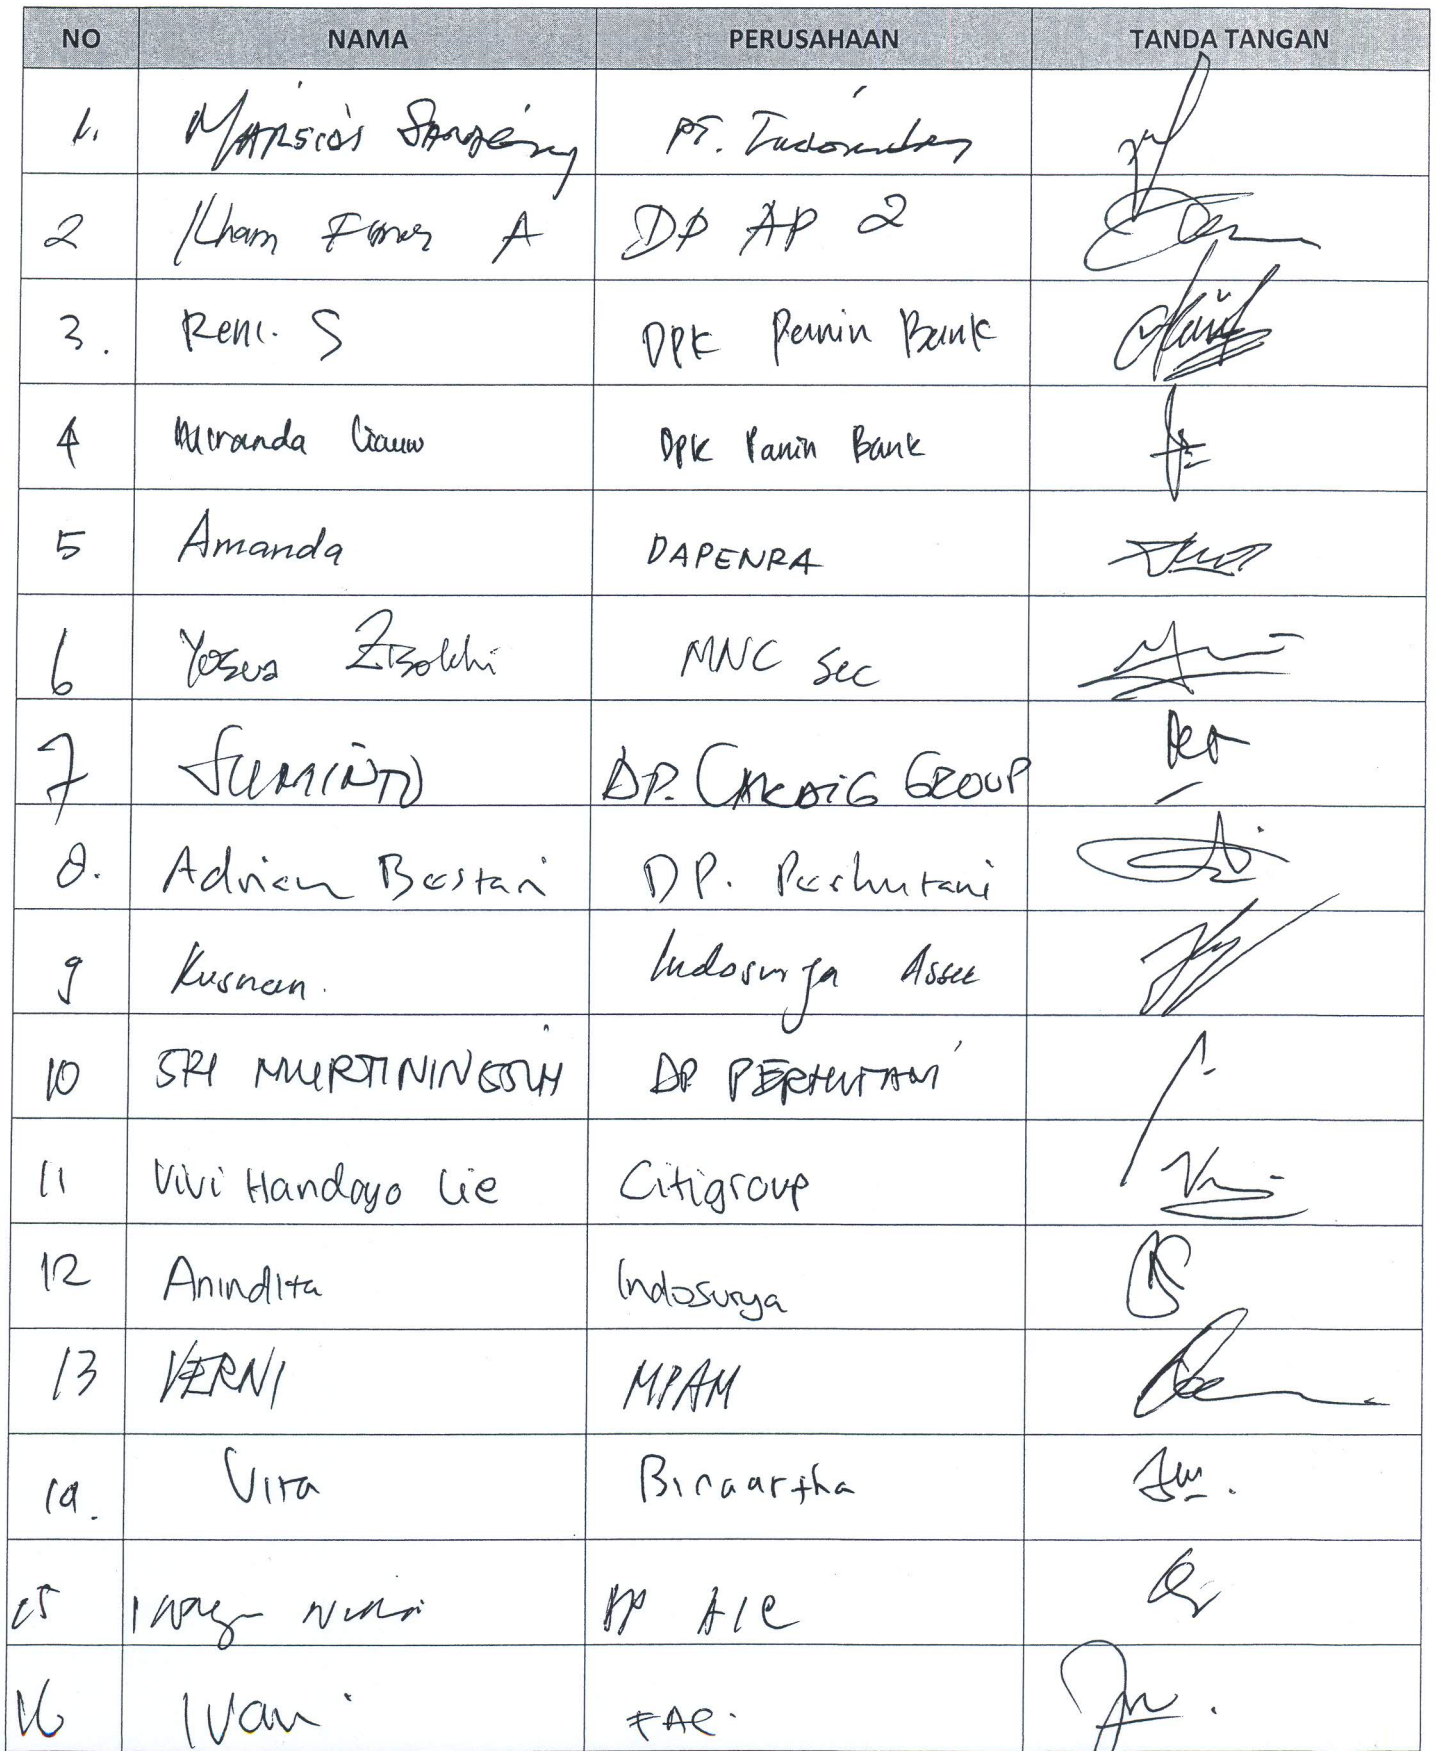 NO NAMA PERUSAHAAN TANDA TANGAN
1. PT.
2 Ilham A DP AP 2
3. Reni. S DPK Panin Bank
4 Miranda Liauw DPK Panin Bank
5 Amanda DAPENRA
6 Yosua Zisokhi MNC Sec
7 SUMINTO DP. GROUP
8. Adrian Bestari DP. Perhutani
9 Kusnan. Indosurya Asset
10 SRI MURTININGSIH DP PERHUTANI
11 Vivi Handoyo Lie Citigroup
12 Anindita Indosurya
13 VERNI MPAM
14. Vira Binaartha
15 DP
16 Ivan FAC.